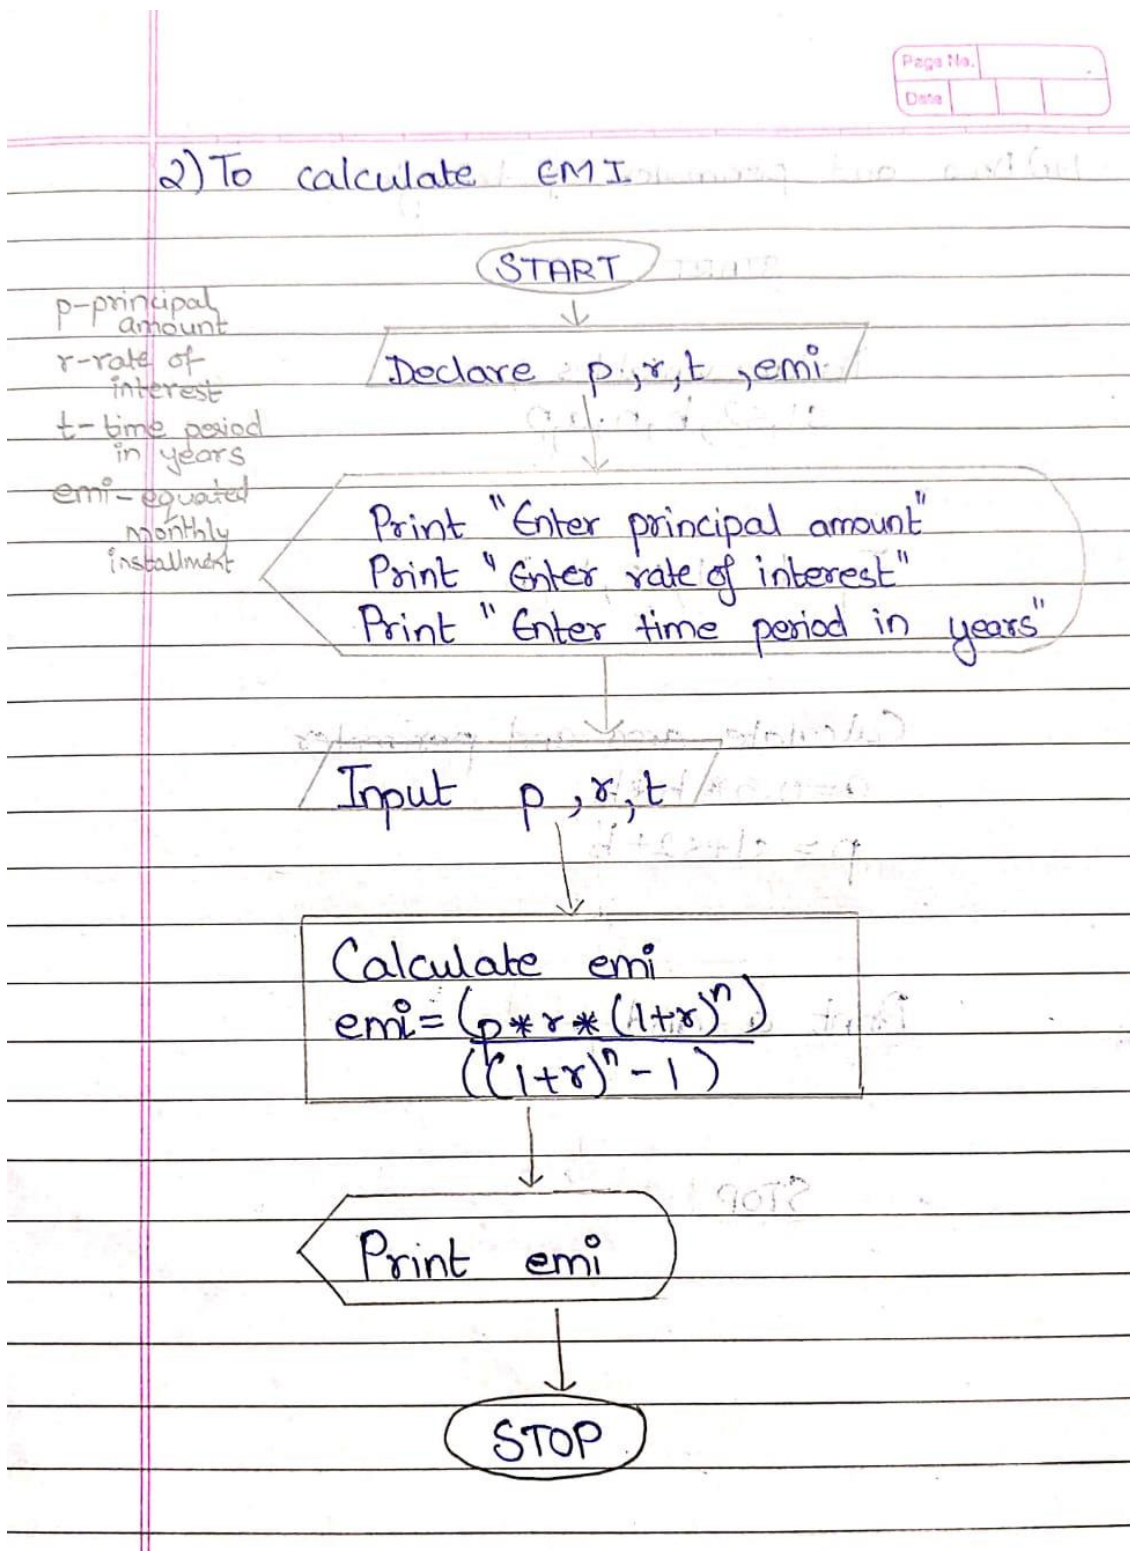 Page No.
Date
2) To calculate EMI
START
p-principal
amount
r-rate of
interest
t-time period
in years
emi-equated
monthly
installment
Declare p,r,t,emi
Print "Enter principal amount"
Print "Enter rate of interest"
Print "Enter time period in years"
Input p,r,t
Calculate emi
emi=(p*r*(1+r)^n)
((1+r)^n-1)
Print emi
STOP